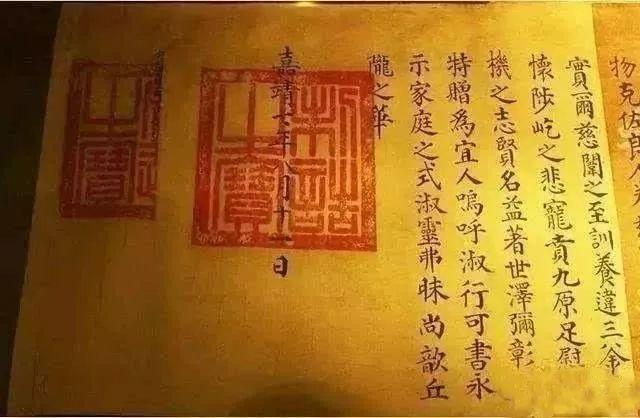 物克佐郎
實爾慈闈之至訓養違三釜
懷陟屺之悲寵賁九原足慰
機之志賢名益著世澤彌彰
特贈為宜人嗚呼淑行可書永
示家庭之式淑靈弗昧尚歆丘
隴之華
嘉靖年八月十一日
制誥之寶
之寶